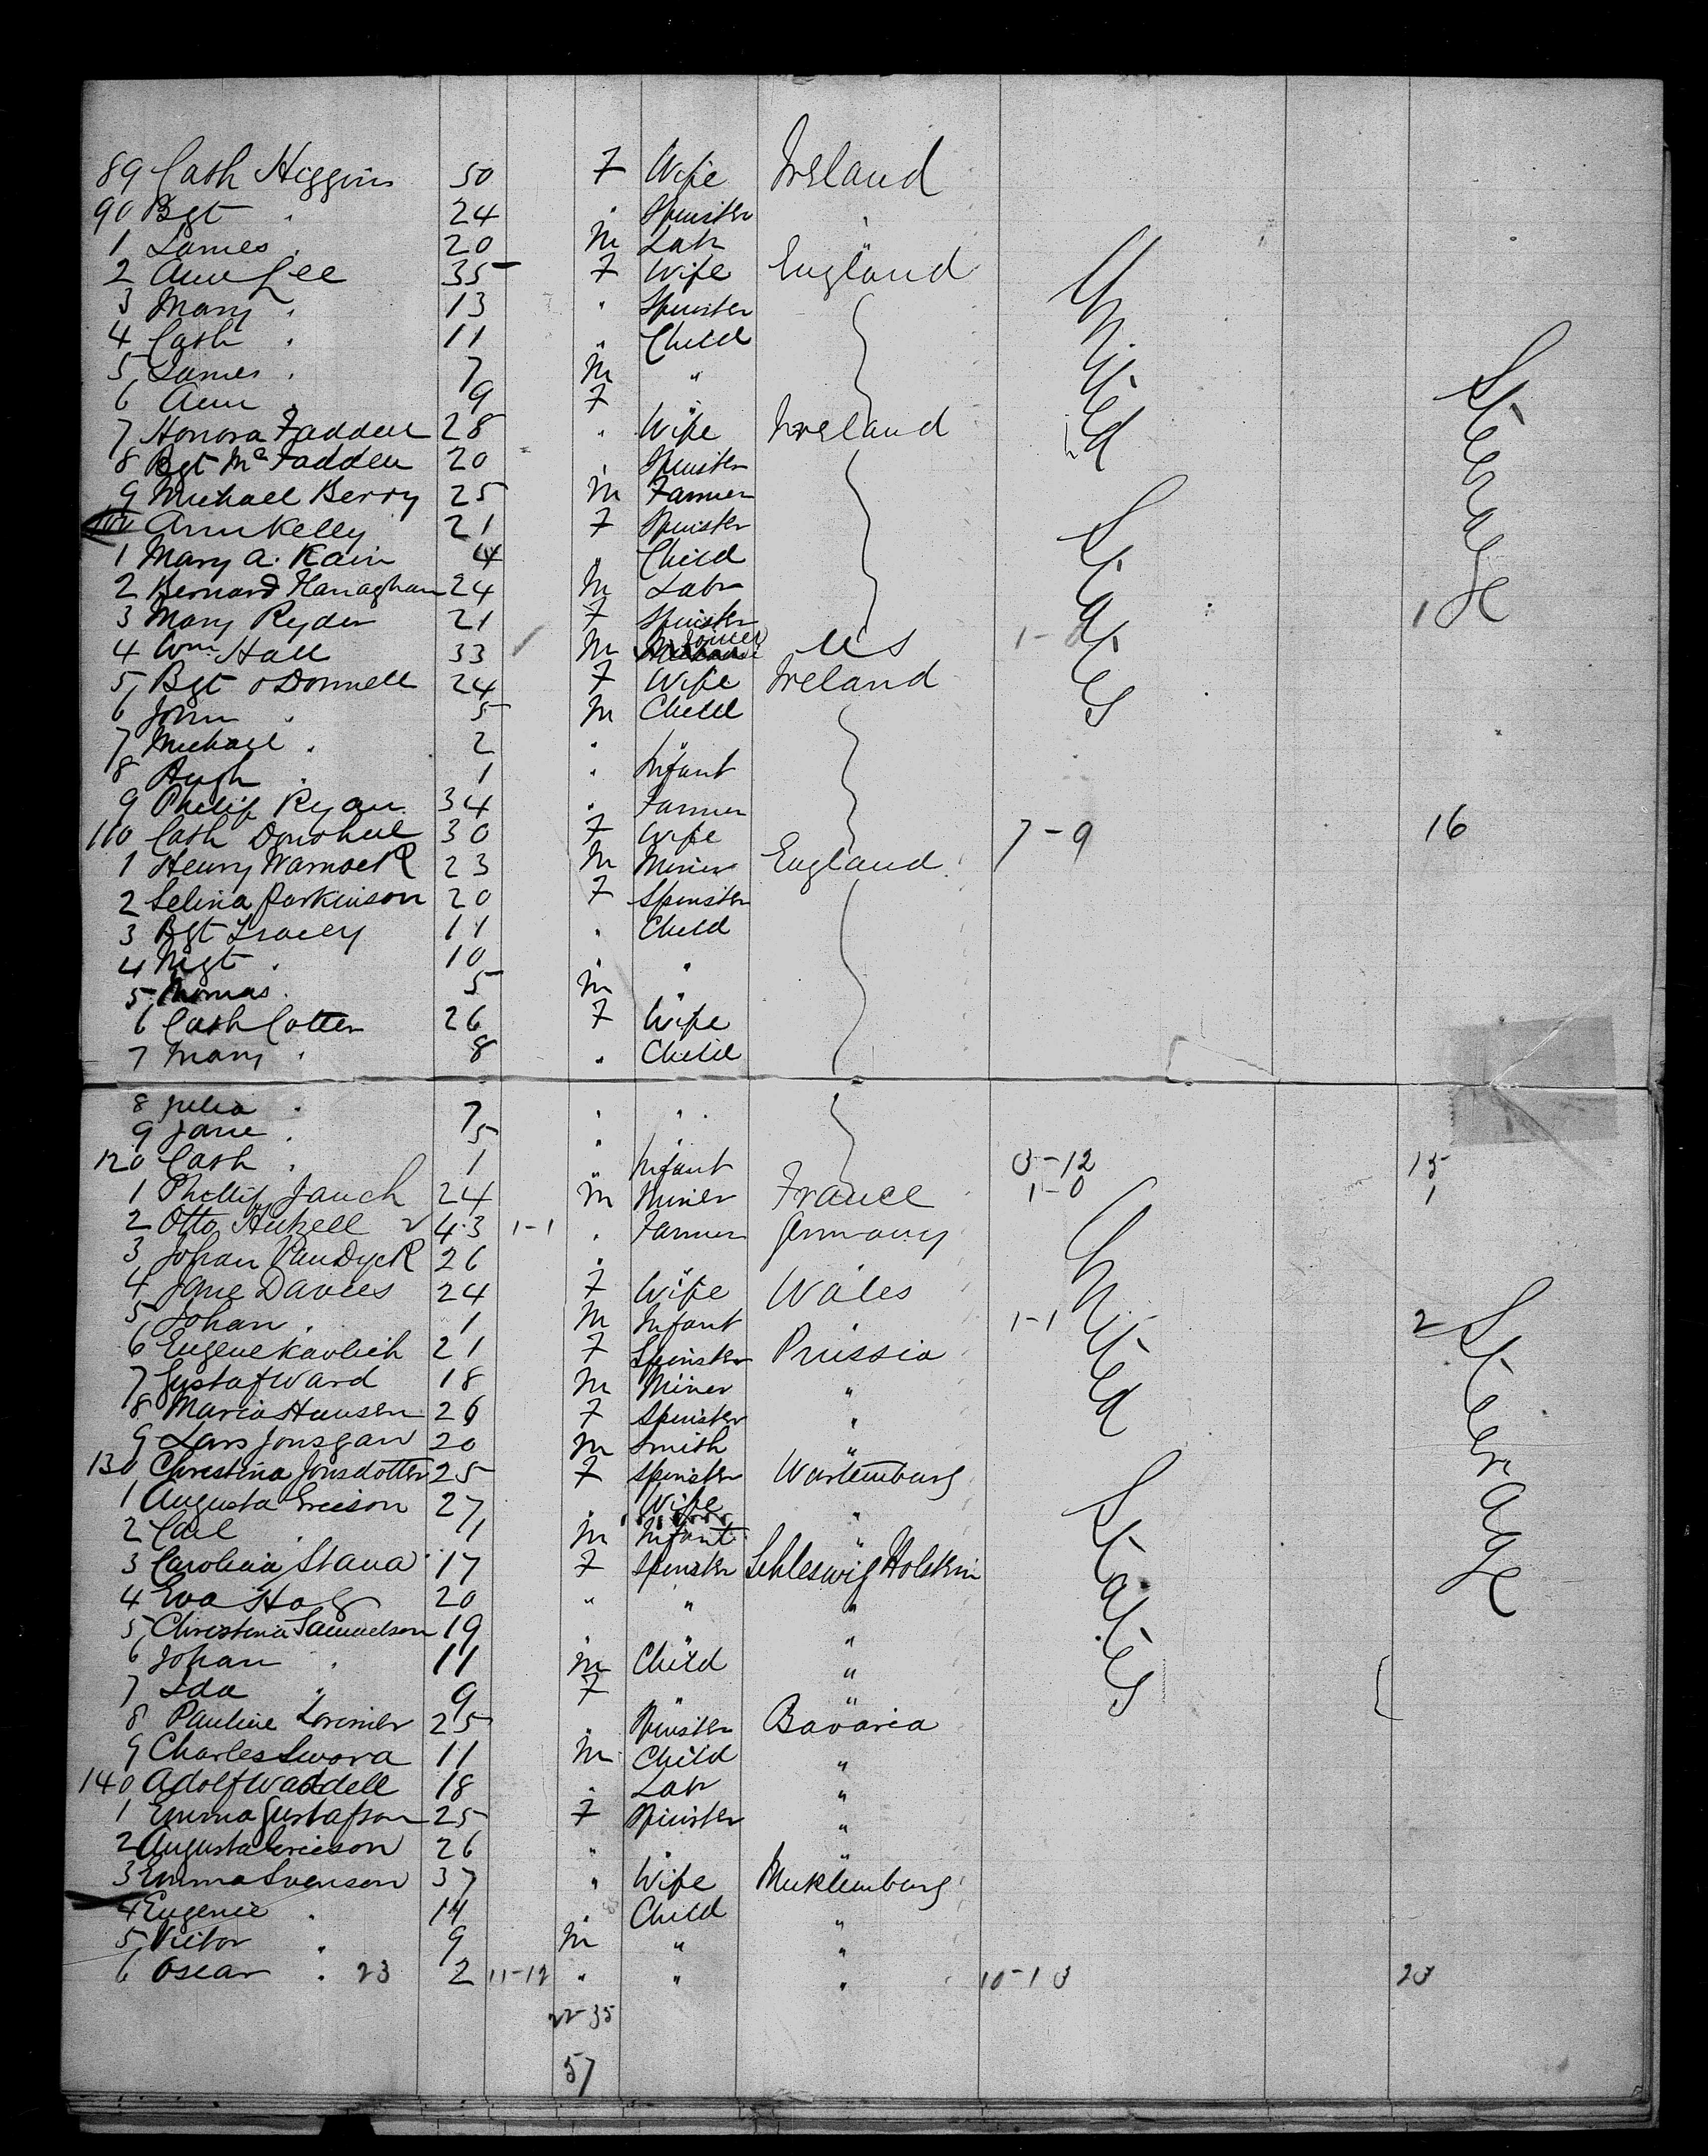 89 Cath Higgins 50 F Wife Ireland
90 Bgt " 24 " Spinster "
1 James " 20 M Labr "
2 Ann Lee 35 F Wife England
3 Mary " 13 " Spinster
4 Cath " 11 " Child
5 James " 7 M "
6 Ann " 9 F "
7 Honora Fadden 28 " Wife Ireland
8 Bgt McFadden 20 " Spinster
9 Michael Berry 25 M Farmer
100 Ann Kelly 21 F Spinster
1 Mary A. Kain 4 " Child
2 Bernard Flanaghan 24 M Labr
3 Mary Ryder 21 F Spinster 1
4 Wm Hall 33 M Joiner US 1-
5 Bgt O Donnell 24 F Wife Ireland
6 John " 5 M Child
7 Michael " 2 " "
8 Hugh " 1 " Infant
9 Philip Ryan 34 " Farmer
110 Cath Donohue 30 F Wife 7-9 16
1 Henry Warnock 23 M Miner England
2 Selina Parkinson 20 F Spinster
3 Bgt Tracey 11 " Child
4 Mgt " 10 " "
5 Thomas " 5 M "
6 Cath Cotter 26 F Wife
7 Mary " 8 " Child
8 Julia " 7 " "
9 Jane " 5 " "
120 Cath " 1 " Infant 3-12 15
1 Phillip Jauch 24 M Miner France 1-0 1
2 Otto 43 1-1 " Farmer Germany
3 Johan VanDyck 26 " " "
4 Jane Davies 24 F Wife Wales
5 Johan " 1 M Infant " 1-1 2
6 Eugene Kavlich 21 F Spinster Prussia
7 Gustaf Ward 18 M Miner "
8 Maria Hansen 26 F Spinster "
9 Lars Jonsgan 20 M Smith "
130 Christina Jonsdotter 25 F Spinster Wurtemburg
1 Augusta Ericson 27 " Wife "
2 Carl " 1 M Infant "
3 Carolina Stava 17 F Spinster Schleswig Holstein
4 Eva 20 " " "
5 Christina Samuelson 19 " " "
6 Johan " 11 M Child "
7 Ida " 9 F " "
8 Pauline Lorimer 25 " Spinster Bavaria
9 Charles Swora 11 M Child "
140 Adolf Waddell 18 " Labr "
1 Emma Gustafson 25 F Spinster "
2 Augusta Ericson 26 " " "
3 Emma Svenson 37 " Wife Mecklemburg
4 Eugenie " 14 " Child "
5 Victor " 9 M " "
6 Oscar " 23 2 11-12 " " " 10-13 23
22-35
57
United
States
Steerage
United
States
Steerage